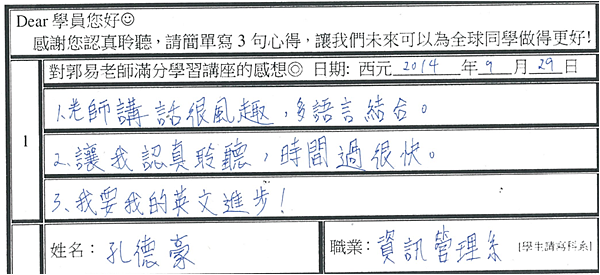 Dear 學員您好☺
感謝您認真聆聽，請簡單寫 3 句心得，讓我們未來可以為全球同學做得更好!
對郭易老師滿分學習講座的感想◎ 日期: 西元 2014 年 9 月 29 日
1.老師講話很風趣，多語言結合。
1
2.讓我認真聆聽，時間過很快。
3.我要我的英文進步!
姓名： 孔德豪 職業： 資訊管理系 [學生請寫科系]